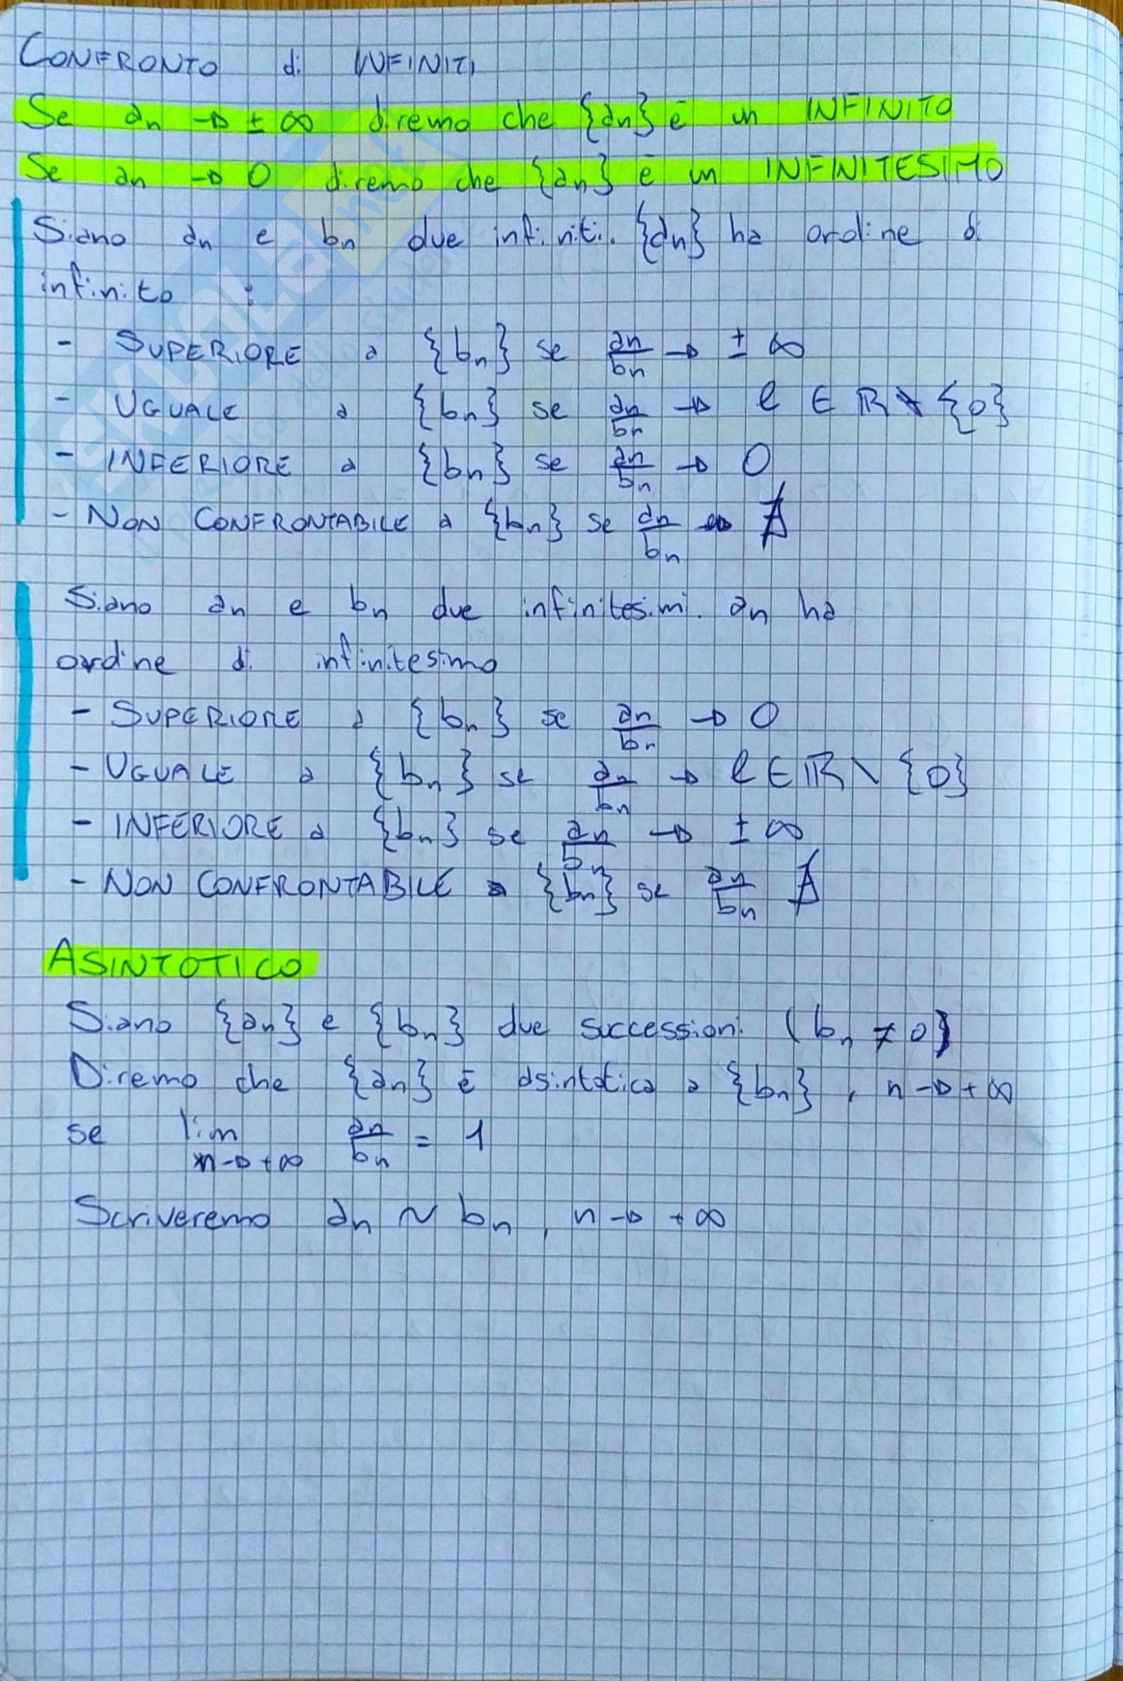 CONFRONTO di INFINITI
Se an → ± ∞ diremo che {an} è un INFINITO
Se an → 0 diremo che {an} è un INFINITESIMO
Siano an e bn due infiniti. {an} ha ordine di
infinito :
- SUPERIORE a {bn} se an/bn → ± ∞
- UGUALE a {bn} se an/bn → ℓ ∈ ℝ \ {0}
- INFERIORE a {bn} se an/bn → 0
- NON CONFRONTABILE a {bn} se an/bn → ∄
Siano an e bn due infinitesimi. an ha
ordine di infinitesimo
- SUPERIORE a {bn} se an/bn → 0
- UGUALE a {bn} se an/bn → ℓ ∈ ℝ \ {0}
- INFERIORE a {bn} se an/bn → ± ∞
- NON CONFRONTABILE a {bn} se an/bn ∄
ASINTOTICO
Siano {an} e {bn} due successioni (bn ≠ 0)
Diremo che {an} è asintotica a {bn}, n → +∞
se lim n→+∞ an/bn = 1
Scriveremo an ~ bn, n → +∞